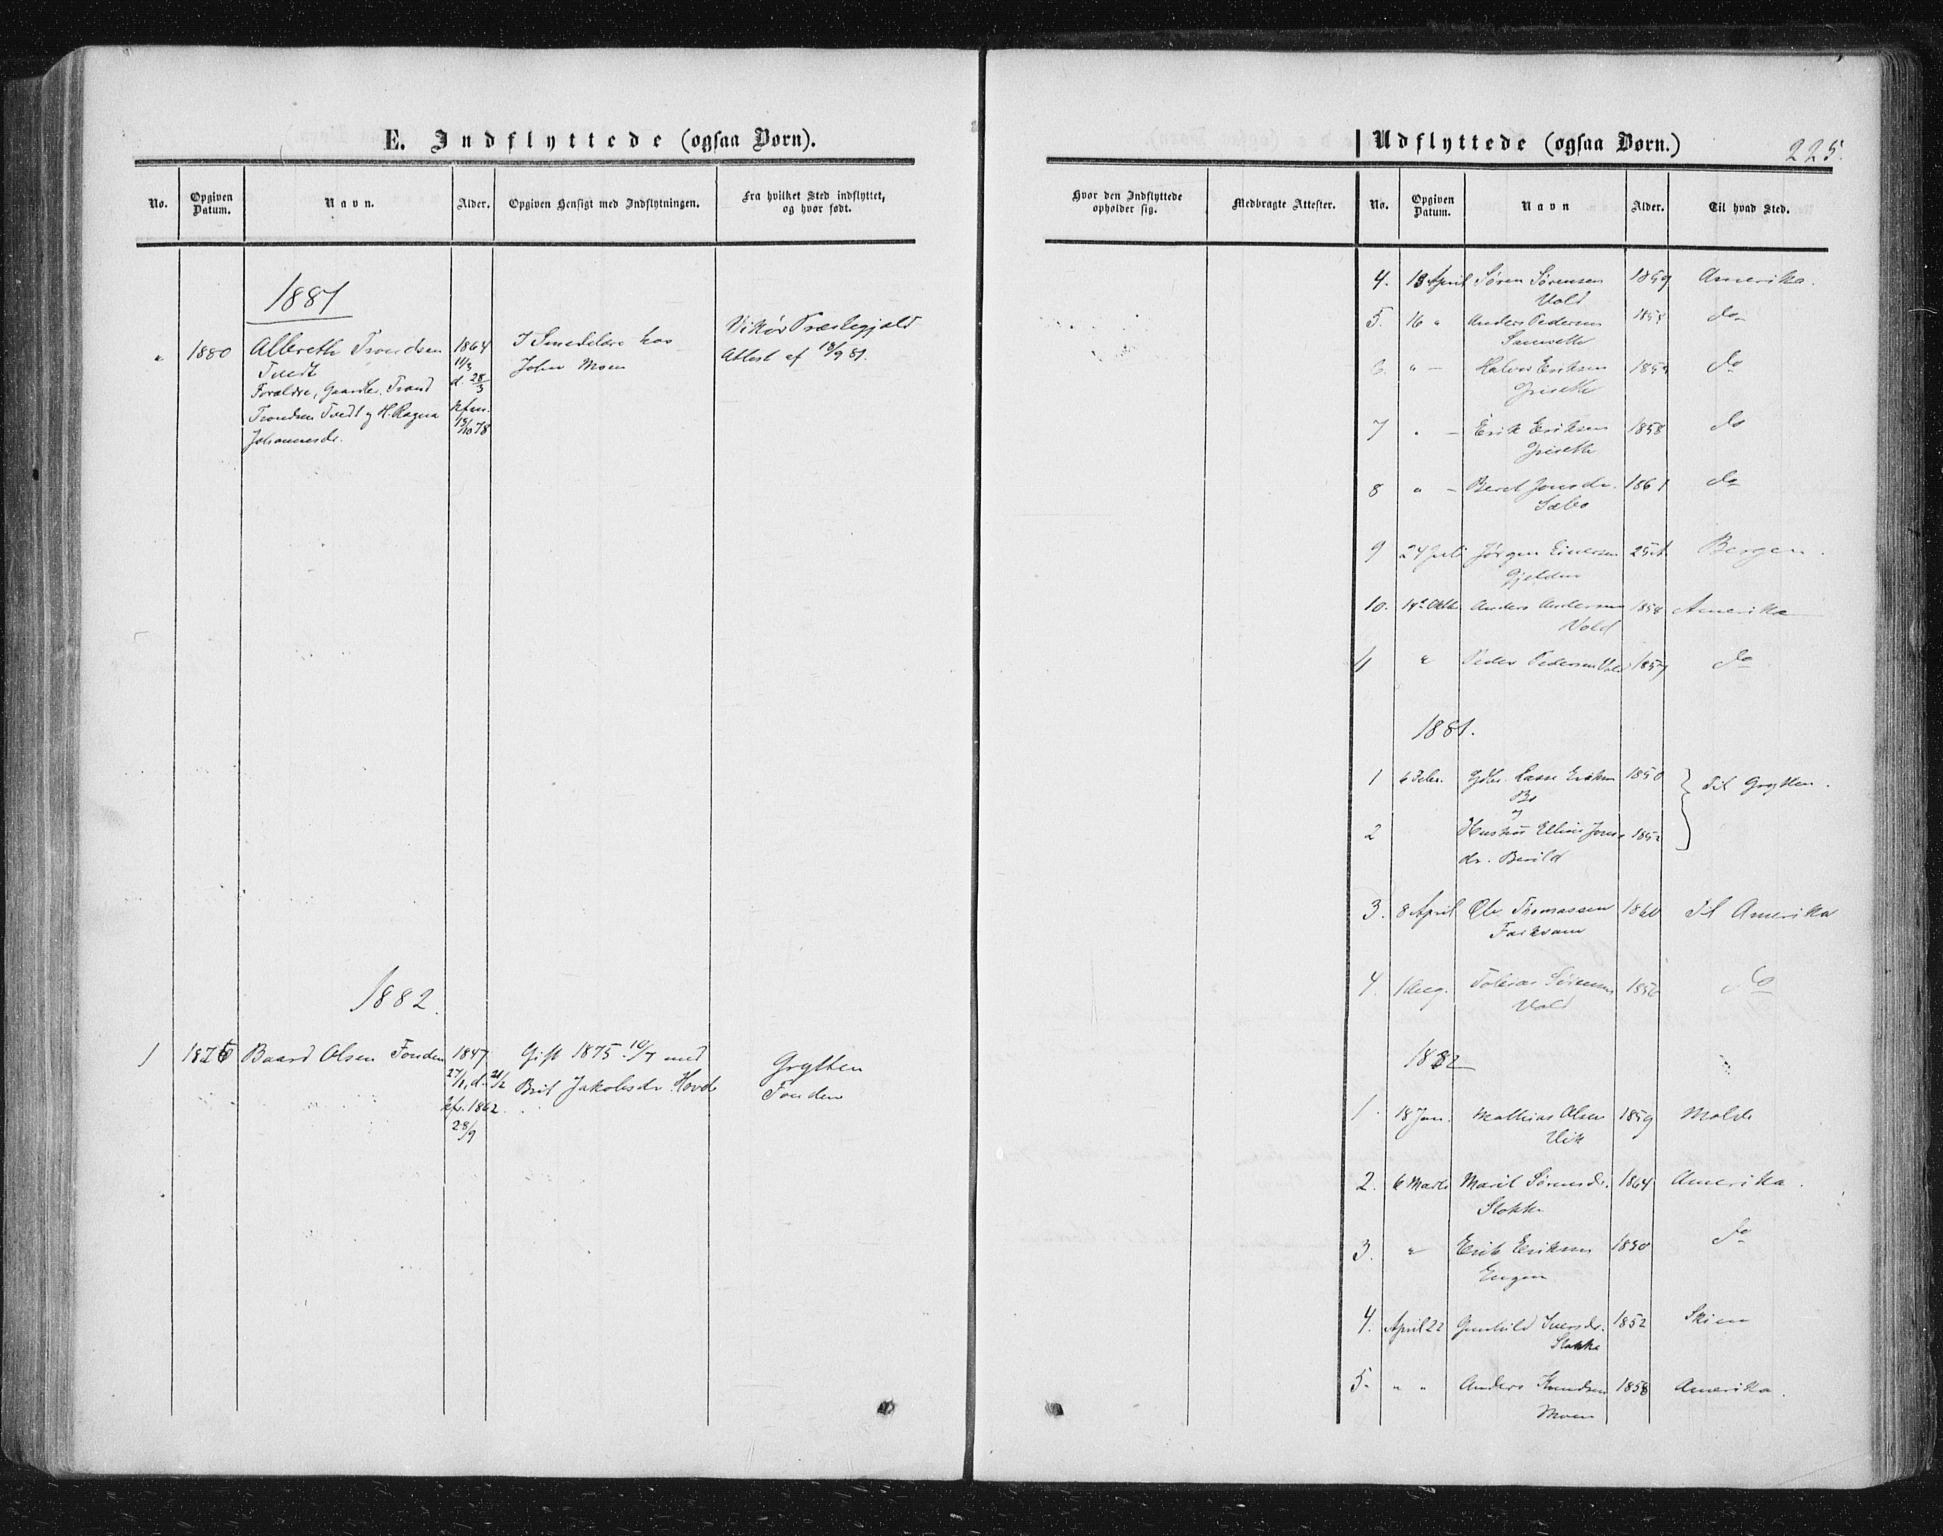 E. Indflyttede (ogsaa Børn).
No.
Opgiven Datum.
Navn.
Alder.
Opgiven Hensigt med Indflytningen.
Fra hvilket Sted indflyttet, og hvor født.
1881
" 1880 Albreth Trondsen 1864 I Smedelære hos Vikør Præstegjæld
Tvedt 11/3 John Moen Attest af 18/9 81.
d. 28/3
Forældre, Gaardbr. Trond
Trondsen Tvedt og H. Ragna
Johannesdr. 78
1882.
1 Baard Olsen Fonden 1847 Gift 1875 10/7 med Grytten
27/1, d. 21/2 Brit Jakobsdr. Hovde Fonden
kf. 1862.
28/9
Udflyttede (ogsaa Børn.)
225.
Hvor den Indflyttede opholder sig.
Medbragte Attester.
No.
Opgiven Datum.
Navn
Alder.
Til hvad Sted.
4. 13 April Søren Sørensen 1859 Amerika.
Vold
5. 16 " Anders Pedersen do
6. " — Halvor Eriksen do
Griseth
7 " — Erik Eriksen 1858 do
Griseth
8 " — Beret Jonsdr. 1861 do
Sæbø
9 24 Juli Jørgen Einersen Bergen.
Gjelden
10. 14de Oktbr Anders Andersen 1858 Amerika
Vold
11 " Peder Pedersen Vold 1857 do
1881.
1 6 Febr. Lasse Eriksen 1850 Til Grytten.
Bø
og
2 Hustru Elline Jons- 1852
dr. Berild
3. 8 April Ole Thomassen 1860 Til Amerika
4. 1 Aug. Tobias Sørensen 1850 do
Vold
1882
1. 18 Jan. Mathias Olsen 1859 Molde
Vik
2. 6 Marts Marit Sørensdr. 1864 Amerika.
Slokke
3. " Erik Eriksen 1850 do
Engen
4. April 22 Gunhild Iversdr. 1852 Skien
Slokke
5. " " Anders Knudsen 1858 Amerika.
Moen